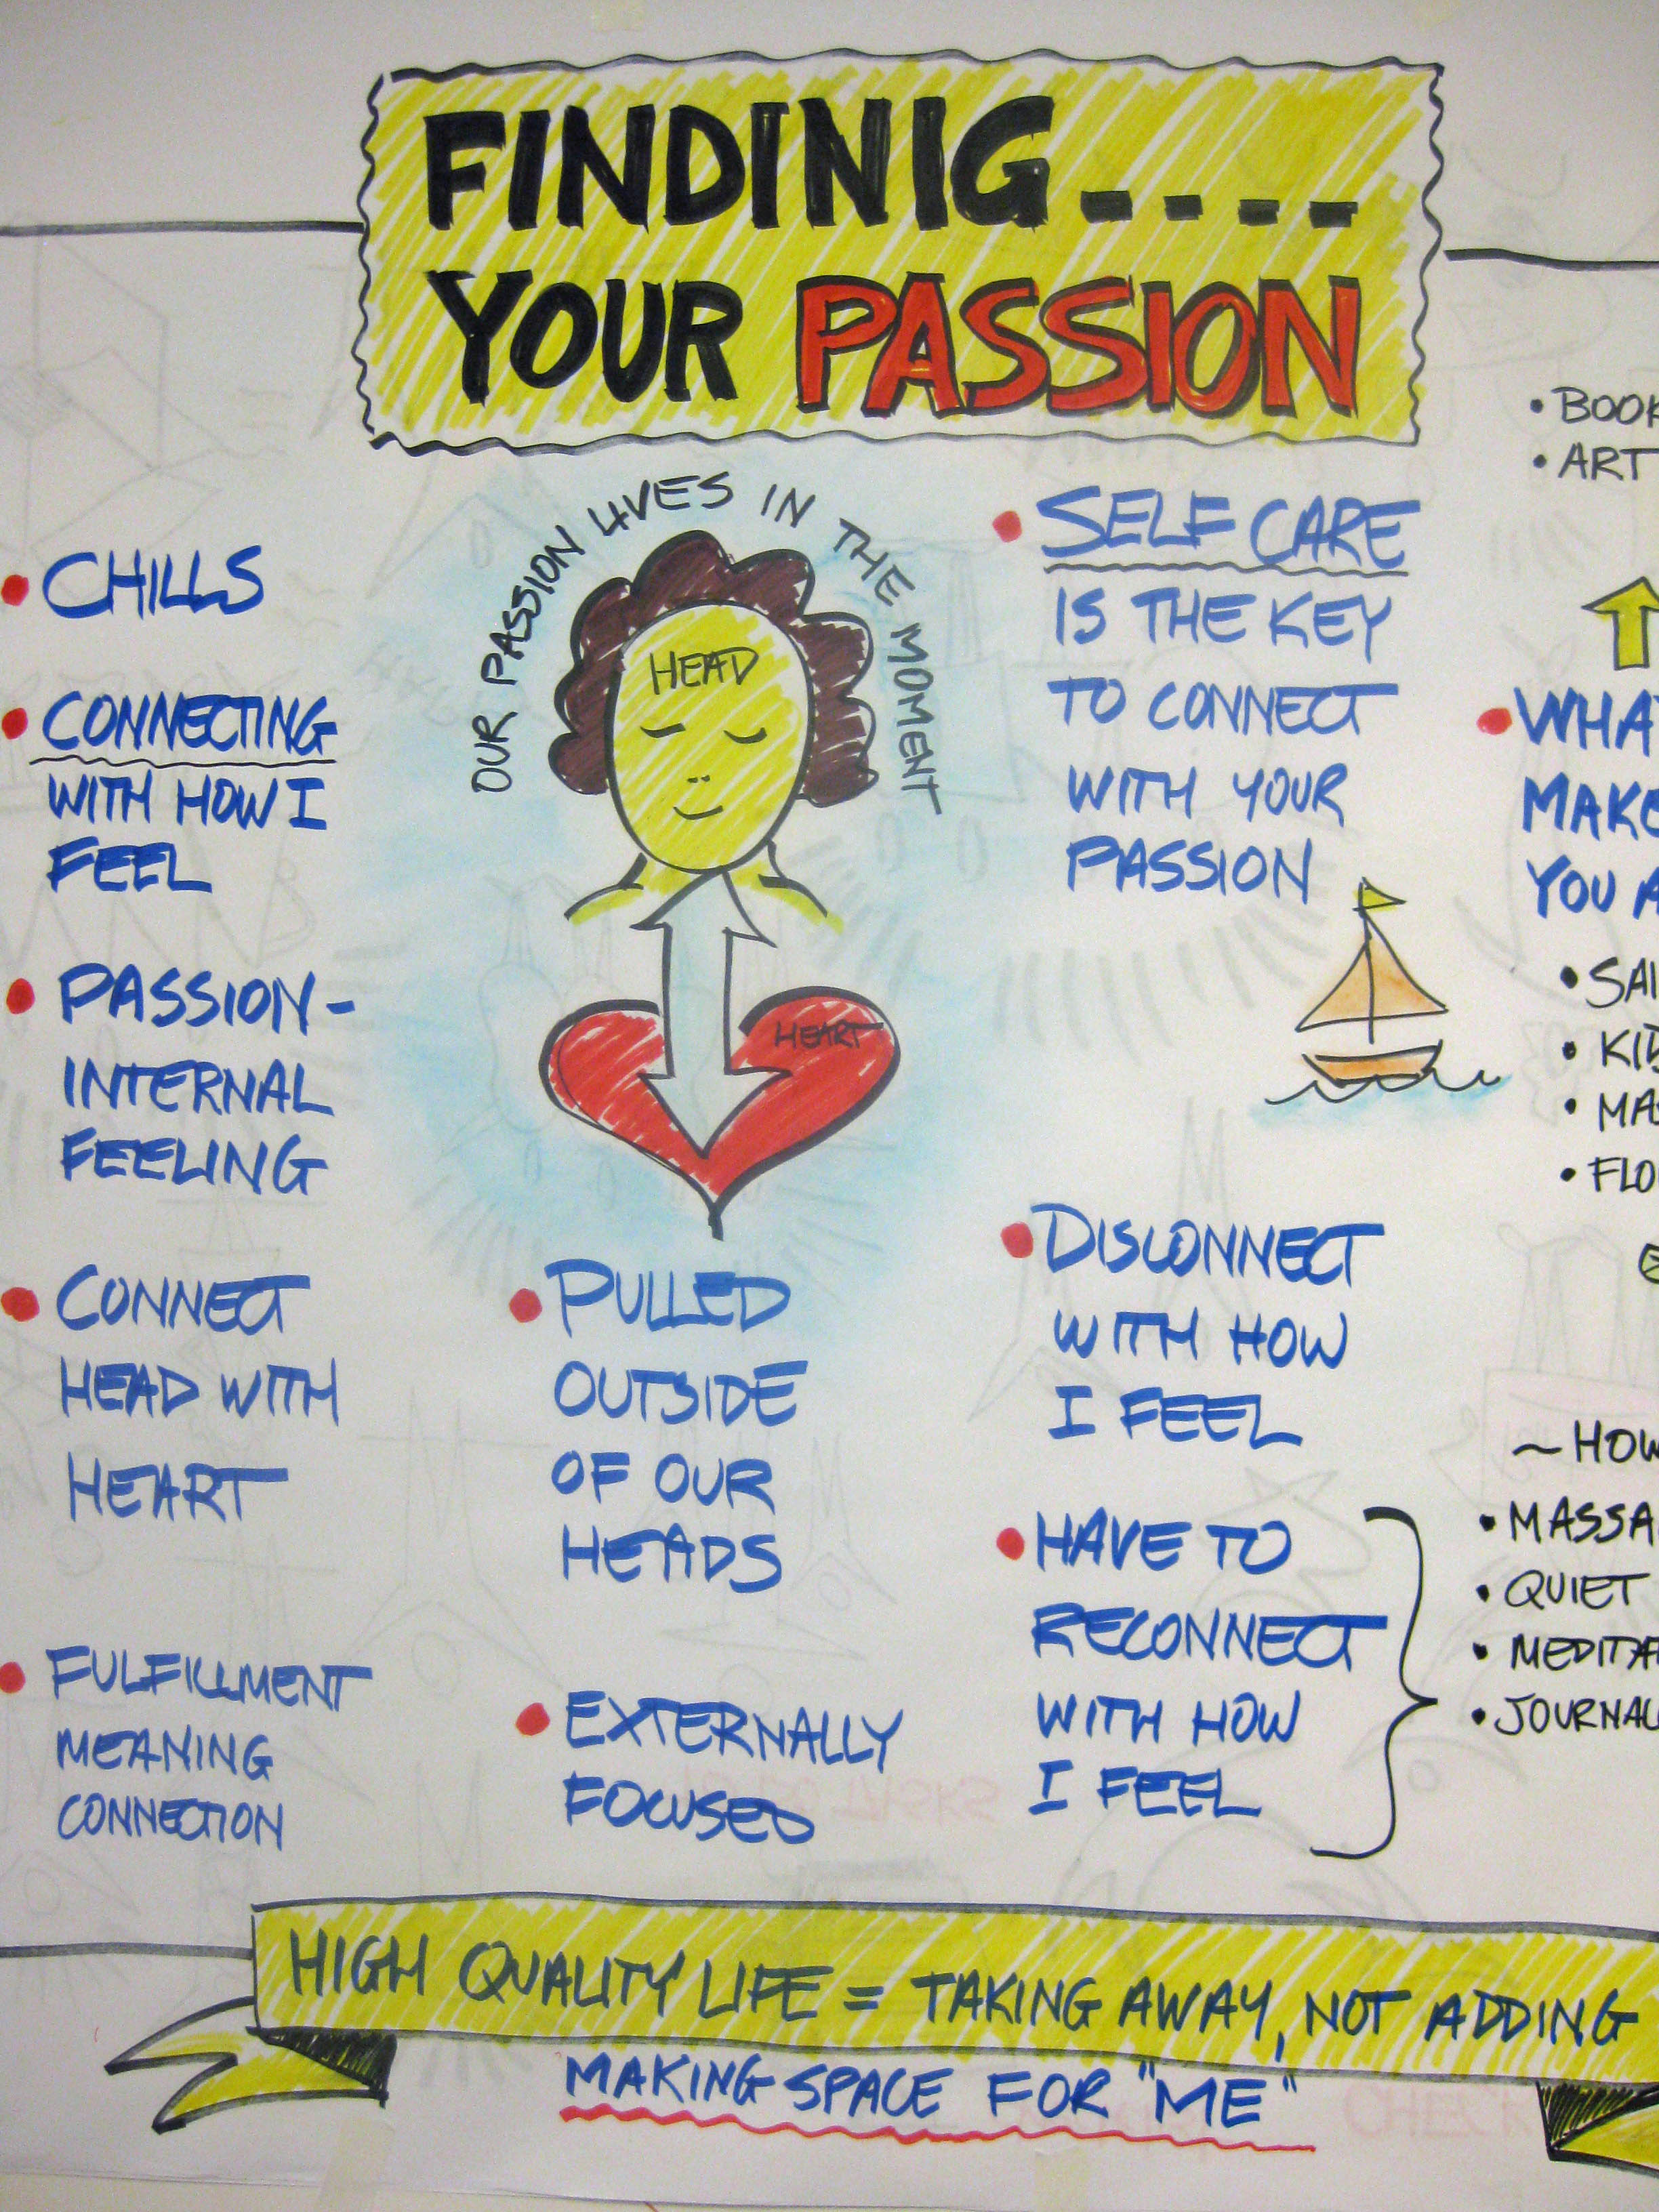 FINDINIG....
YOUR PASSION
OUR PASSION LIVES IN THE MOMENT
HEAD
HEART
• CHILLS
• CONNECTING
WITH HOW I
FEEL
• PASSION-
INTERNAL
FEELING
• CONNECT
HEAD WITH
HEART
• FULFILLMENT
MEANING
CONNECTION
• PULLED
OUTSIDE
OF OUR
HEADS
• EXTERNALLY
FOCUSED
• SELF CARE
IS THE KEY
TO CONNECT
WITH YOUR
PASSION
• DISCONNECT
WITH HOW
I FEEL
• HAVE TO
RECONNECT
WITH HOW
I FEEL
• BOOK
• ART
• WHAT
MAKE
YOU A
• SAI
• KID
• MAS
• FLO
~ HOW
• MASSA
• QUIET
• MEDITA
• JOURNAL
HIGH QUALITY LIFE = TAKING AWAY, NOT ADDING
MAKING SPACE FOR "ME"